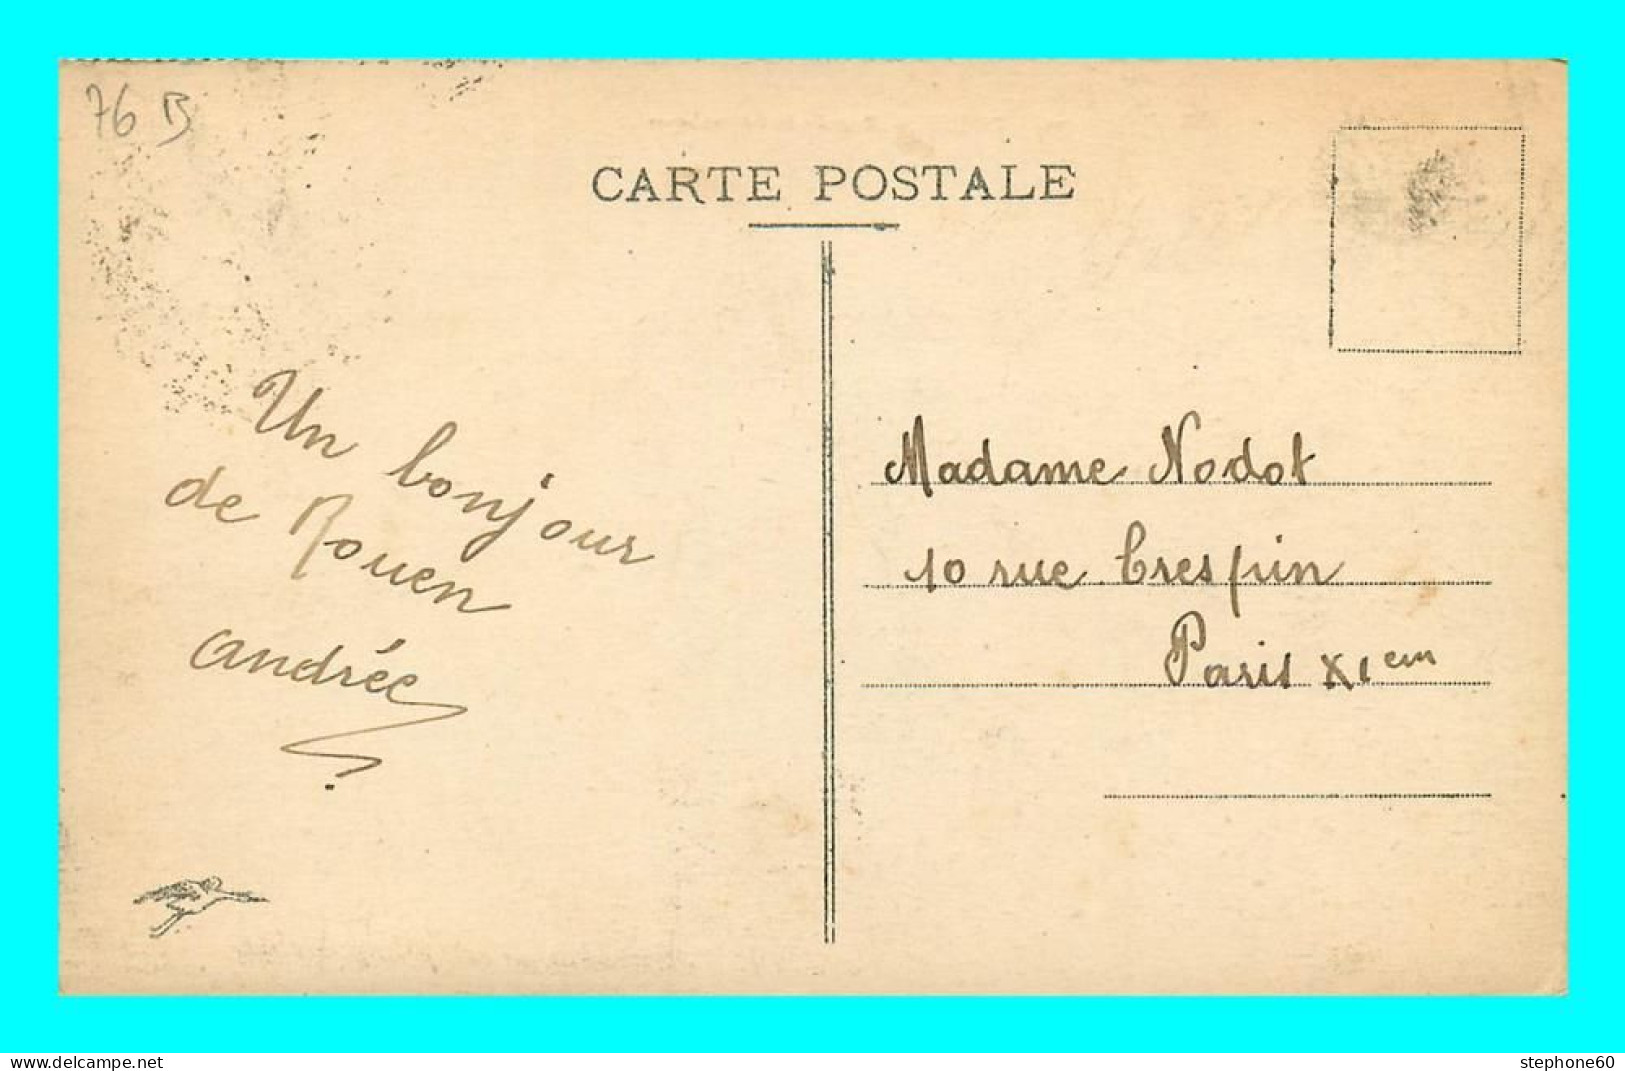 76 B
CARTE POSTALE
Un bonjour
de Rouen
andrée
Madame Nodot
10 rue Crespin
Paris XIem
www.delcampe.net
stephone60